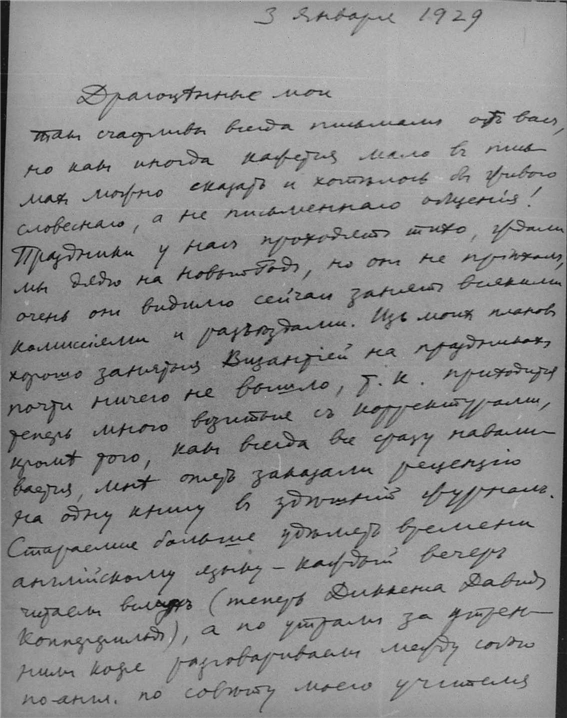 3 Января 1929
Драгоцѣнные мои
такъ счастливы всегда письмамъ отъ васъ,
но какъ иногда кажется мало въ пись-
махъ можно сказать и хотѣлось бы живого
словеснаго, а не письменнаго общенія!
Праздники у насъ проходятъ тихо, ждали
мы дядю на новый годъ, но онъ не пріѣхалъ,
очень онъ видимо сейчасъ занятъ всякими
комиссіями и разъѣздами. Изъ моихъ плановъ
хорошо заняться Византіей на праздникахъ
почти ничего не вышло, т. к. приходится
теперь много возиться съ корректурами,
кромѣ того, какъ всегда все сразу навали-
вается, мнѣ опять заказали рецензію
на одну книгу в здѣшній журналъ.
Стараемся больше удѣлять времени
англійскому языку – каждый вечеръ
читаемъ вслухъ (теперь Диккенса Давидъ
Копперфильдъ), а по утрамъ за утрен-
нимъ кофе разговариваемъ между собою
по-англ. по совѣту моего учителя